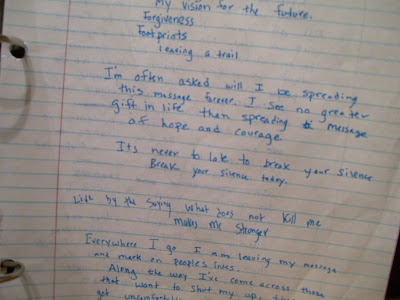 My vision for the future.
Forgiveness
Footprints
Leaving a trail
I'm often asked will I be spreading
this message forever. I see no greater
gift in life than spreading a message
of hope and courage.
Its never to late to break your silence
Break your silence today.
Life by the saying what does not kill me
makes me stronger
Everywhere I go I am leaving my message
and mark on peoples lives.
Along the way I've come across those
that want to shut my up,
got uncomfortable